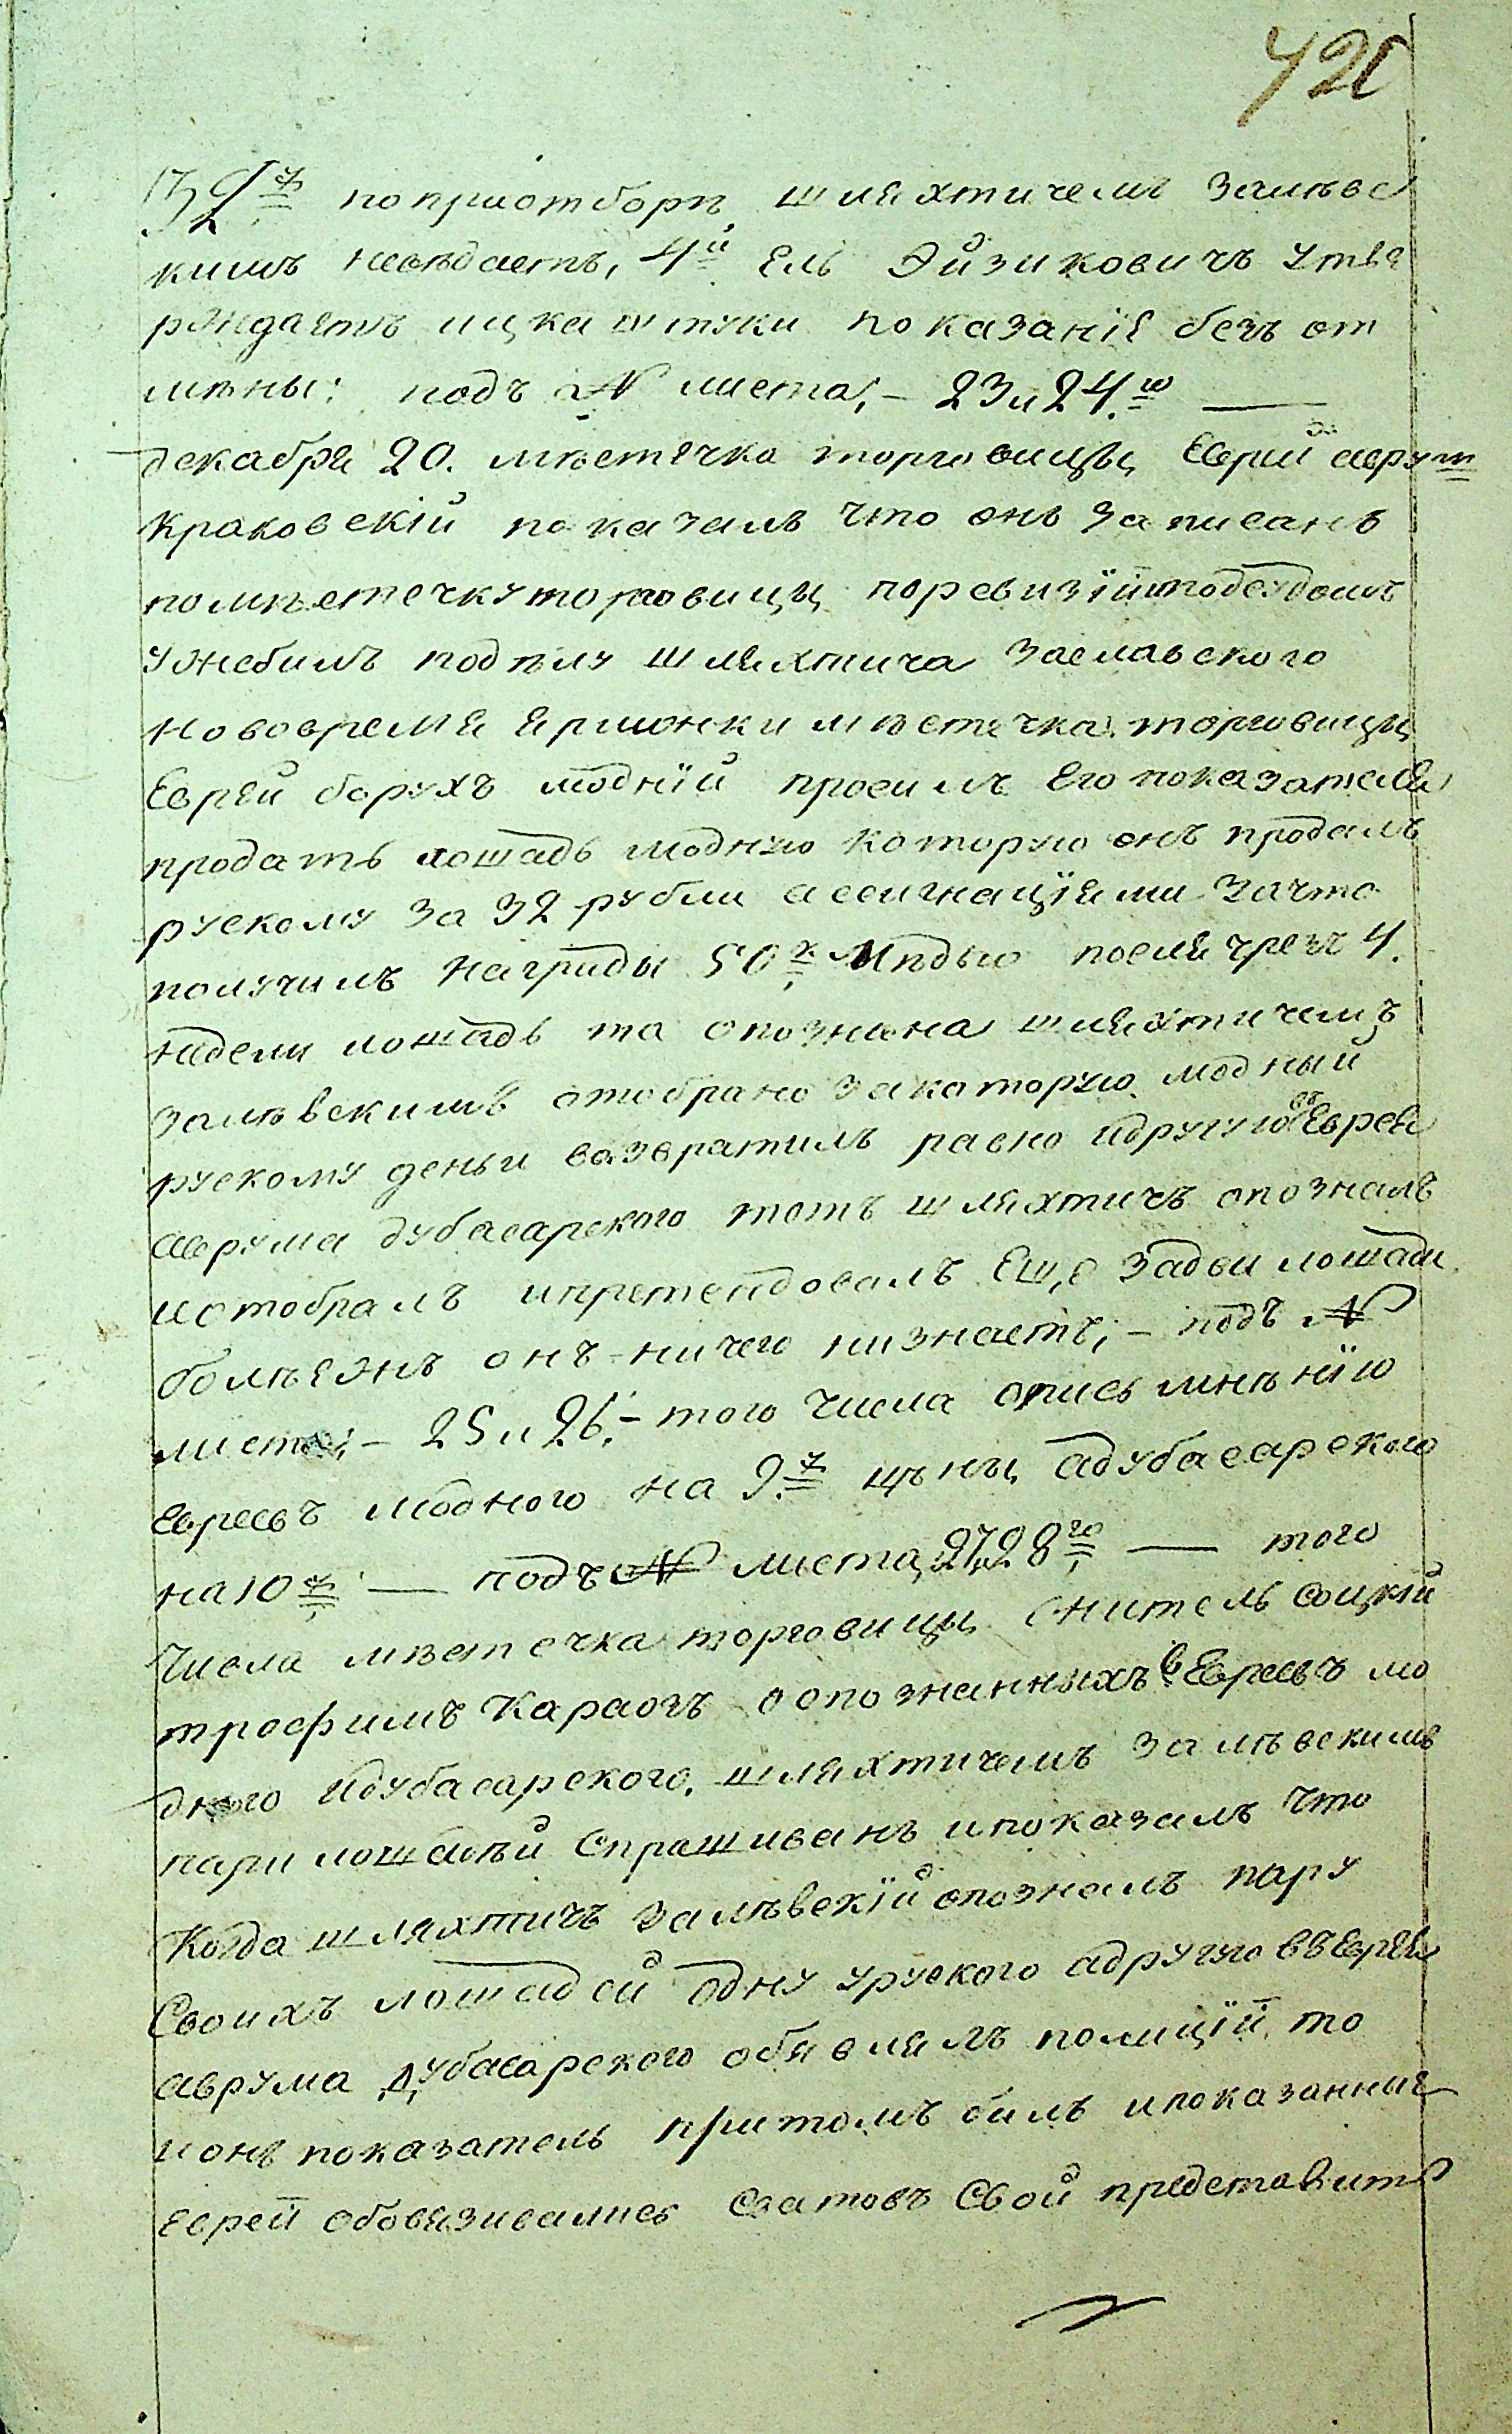 420
32 р. по приотборѣ шляхтичемъ Залѣвс
кимъ невѣдаетъ, 4й Ель Эйзиковичъ утве
рждаетъ ицка штуки показанїе безъ от
мѣны: подъ № листа,– 23 и 24.ю —
декабря 20. мѣстечка торговицы, Еврей аврум
Краковскїй показалъ что онъ записанъ
помѣстечку торговицы поревизїи
ужебилъ шляхтича Заславского
Нововремя ярмонки мѣстечка торговицы
Еврей борухъ модний просилъ Его показателя
продать лошадь модную которую онъ продалъ
рускому за 32 рубли ассигнацїями зачто
получилъ награды 50 к мѣдью после чрезъ 4.
недели лошадь та опознана шляхтичемъ
залѣвскимъ отобрано закоторую модный
рускому деньги возвратилъ равно идругую въ Еврея
аврума дубасарского тотъ шляхтичъ опозналъ
иотобралъ ипретендовалъ Еще задви лошади
болѣеянъ онъ ничего низнаетъ;– подъ №
листа;– 25 и 26.– того числа опись имѣнїю
Евреевъ модного на 9.р цѣны, адубасарского
на 10 р — подъ № листа, 27и28го — того
Числа мѣстечка торговицы житель соцкїй
трофимъ Караогъ оопознанныхъ в Евреевъ мо
дного идубасарского, шляхтичемъ залѣвскимъ
пари лошадѣй спрашиванъ ипоказалъ что
Когда шляхтичъ залѣвскїй опозналъ пару
Своихъ лошадей одну уруского адругую въЕврея
аврума Дубасарского обявлялъ полицїи, то
ионъ показатель притомъ билъ ипоказанные
Еврей обовязивались Сватовъ Свой представить